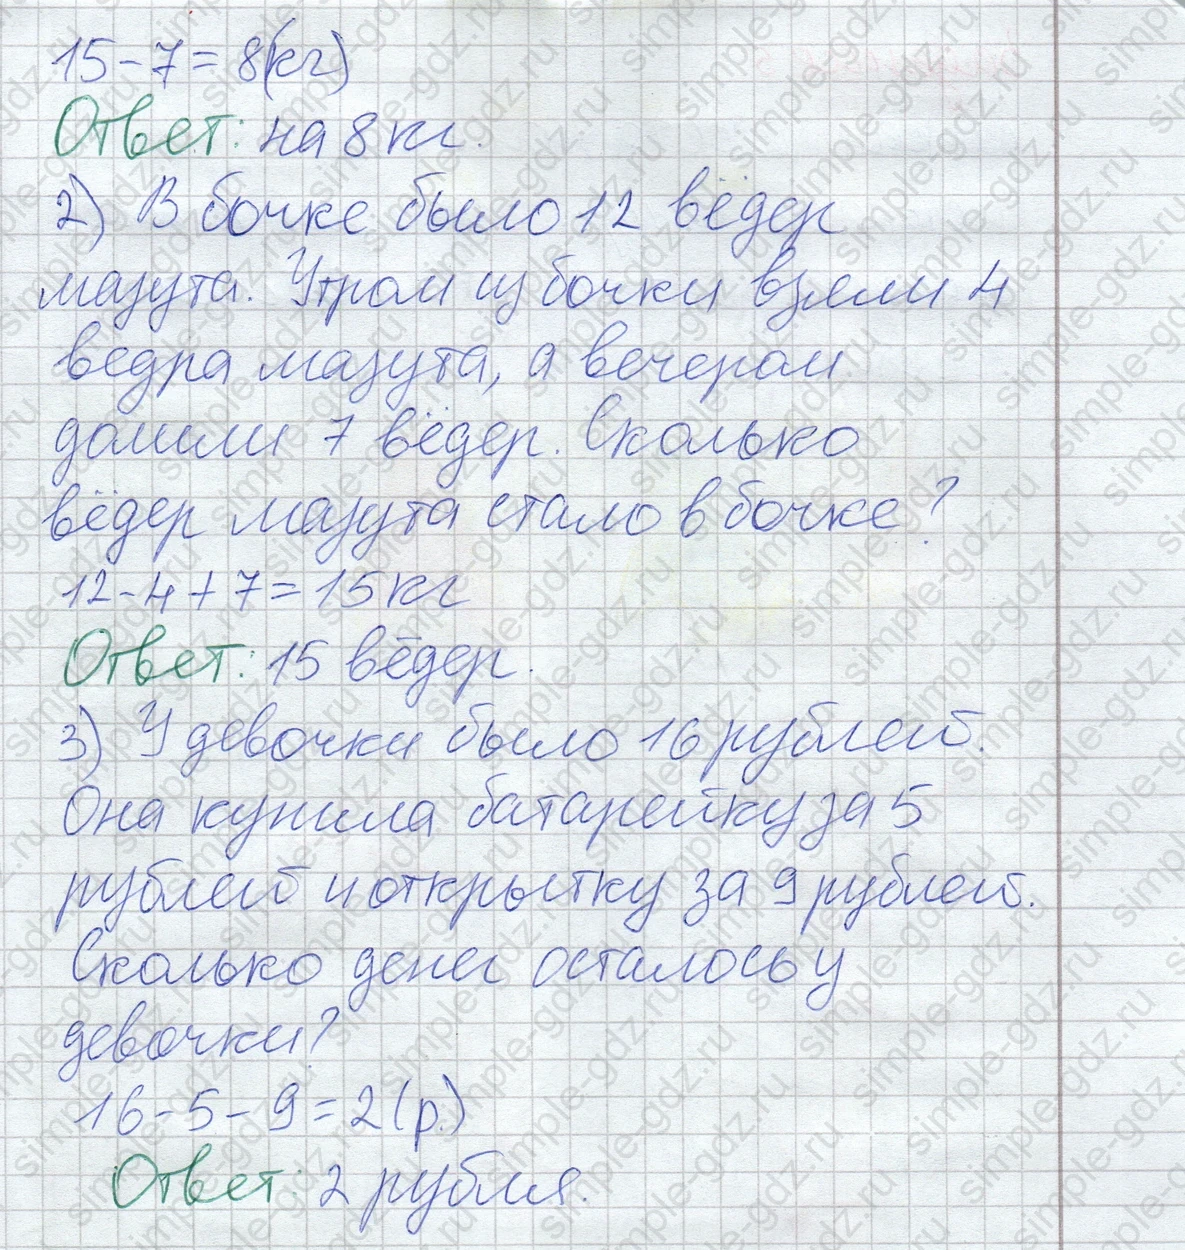 15-7=8(кг)
Ответ: на 8 кг.
2) В бочке было 12 вёдер
мазута. Утром из бочки взяли 4
ведра мазута, а вечером
долили 7 вёдер. Сколько
вёдер мазута стало в бочке?
12-4+7=15кг
Ответ: 15 вёдер.
3) У девочки было 16 рублей.
Она купила батарейку за 5
рублей и открытку за 9 рублей.
Сколько денег осталось у
девочки?
16-5-9=2(р.)
Ответ: 2 рубля.
simple-gdz.ru